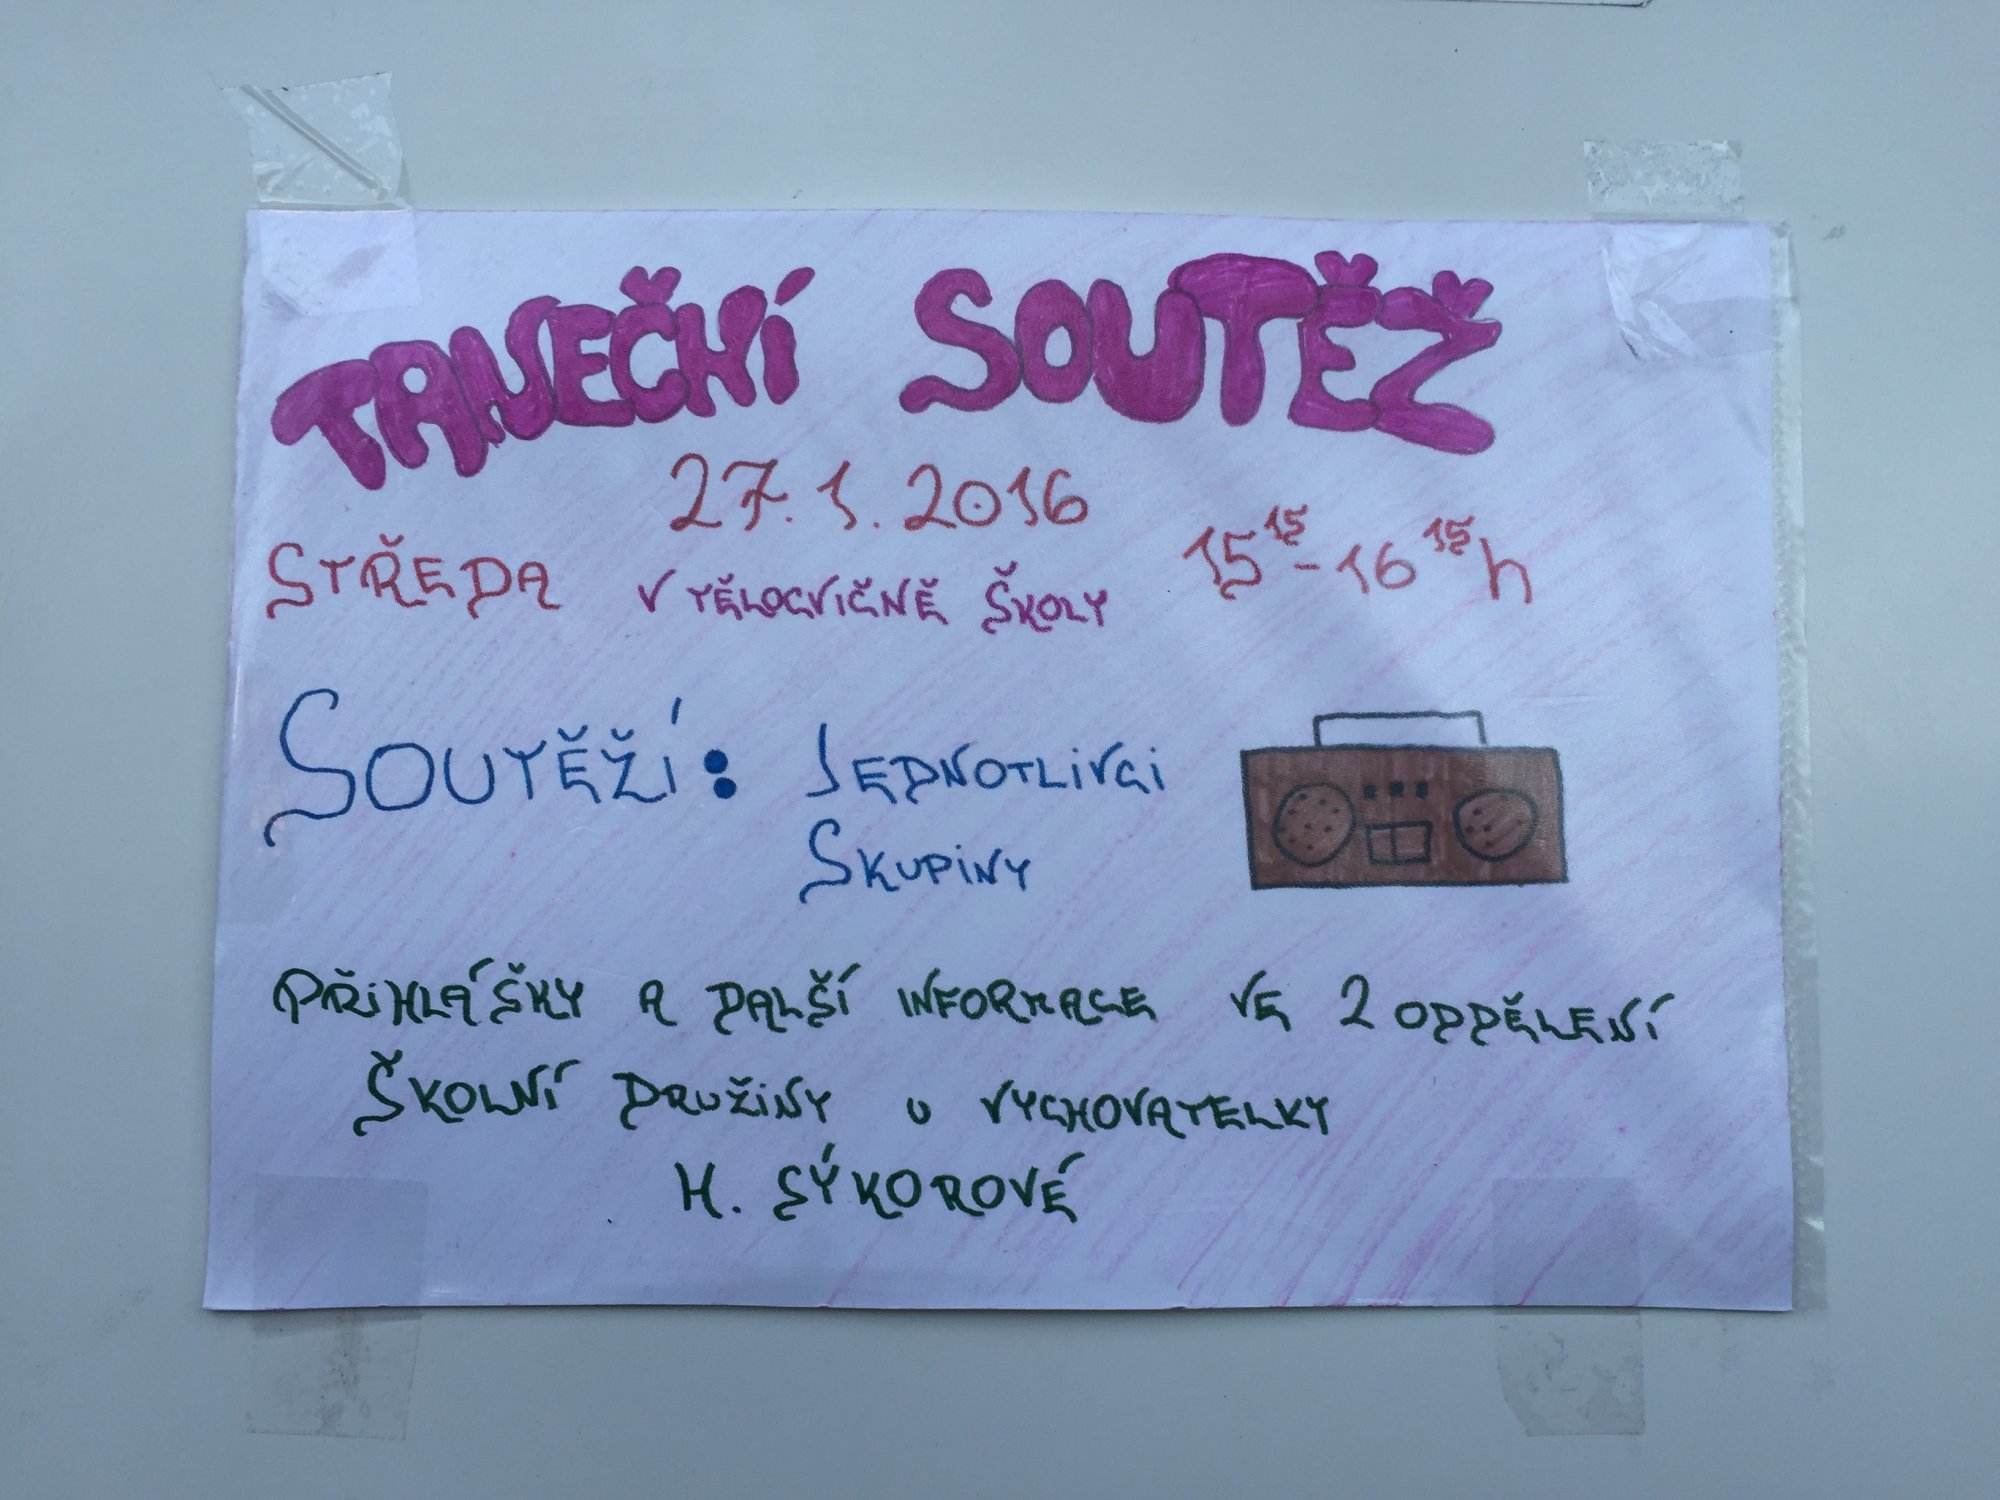 TANEČNÍ SOUTĚŽ
27.1.2016
STŘEDA V TĚLOCVIČNĚ ŠKOLY 15¹⁵-16¹⁵h
SOUTĚŽÍ: JEDNOTLIVCI
SKUPINY
PŘIHLÁŠKY A DALŠÍ INFORMACE VE 2 ODDĚLENÍ
ŠKOLNÍ DRUŽINY U VYCHOVATELKY
H. SÝKOROVÉ